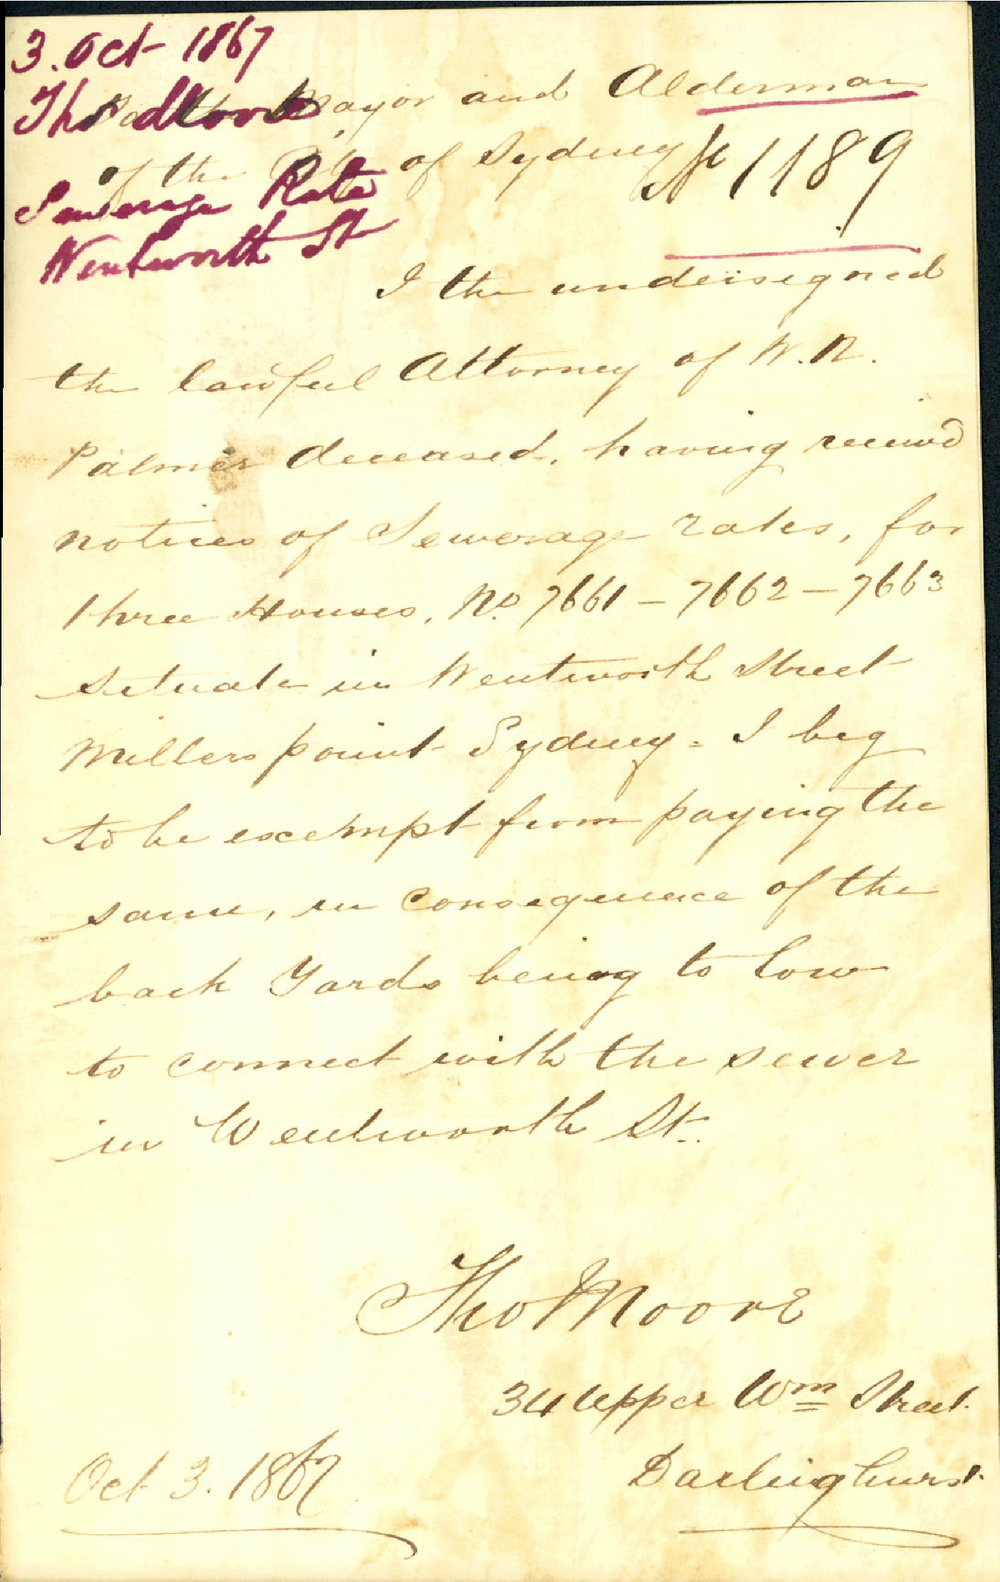 3. Oct 1867
Thos Moore
Sewerage Rate
Wentworth St
To the Mayor and Alderman
of the City of Sydney
No 1189
I the undersigned
the lawful Attorney of W. R.
Palmer deceased, having received
notices of Sewerage rates, for
three Houses, No. 7661 - 7662 - 7663
situate in Wentworth Street
Millers point Sydney - I beg
to be exempt from paying the
same, in consequence of the
back Yards being to low
to connect with the sewer
in Wentworth St.
Tho Moore
34 Upper Wm Street
Darlinghurst
Oct 3. 1867